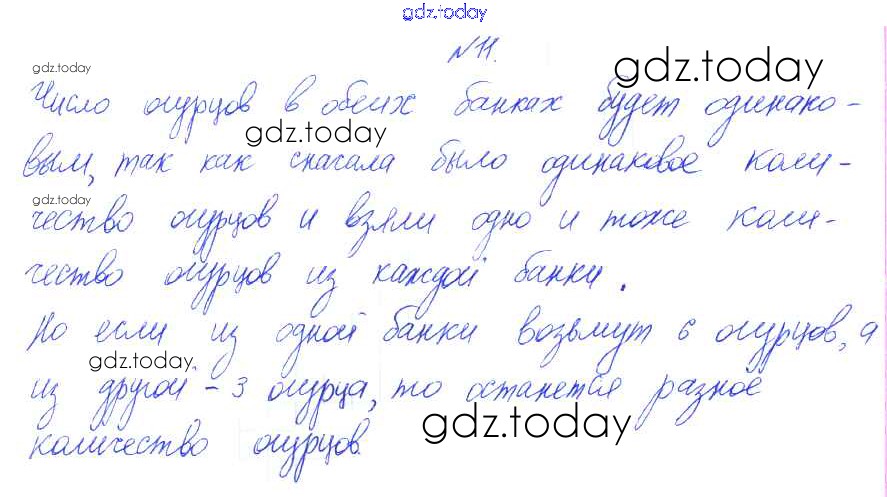 gdz.today
№11.
gdz.today
gdz.today
Число огурцов в обеих банках будет одинако-
gdz.today
вым, так как сначала было одинаковое коли-
gdz.today
чество огурцов и взяли одно и тоже коли-
чество огурцов из каждой банки.
Но если из одной банки возьмут 6 огурцов, а
gdz.today
из другой - 3 огурца, то останется разное
gdz.today
количество огурцов.